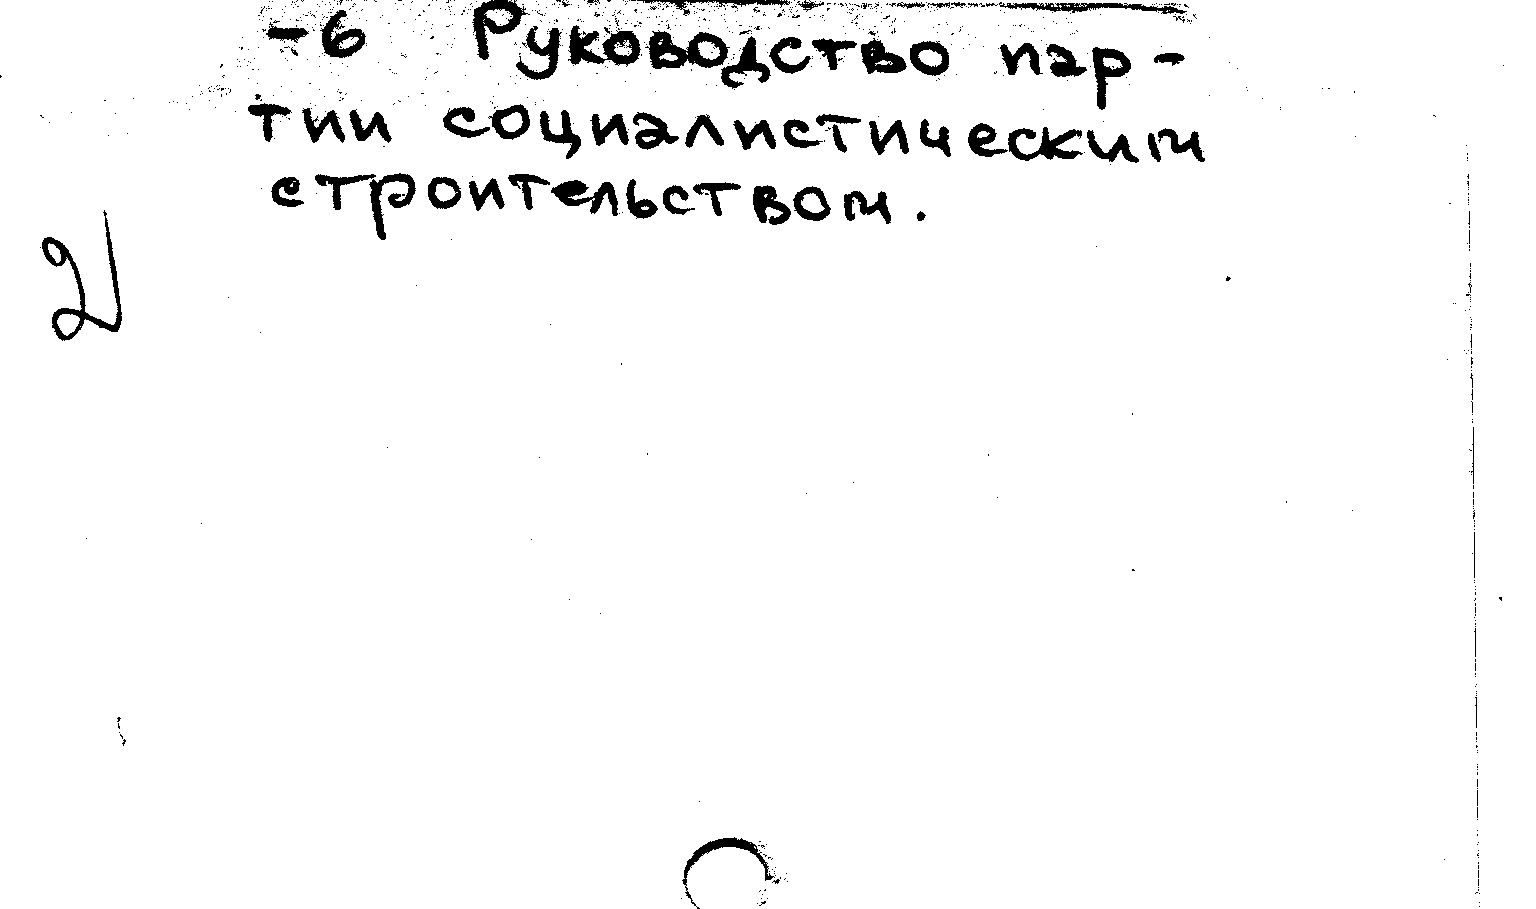 -6 Руководство пар-
тии социалистическим
строительством.